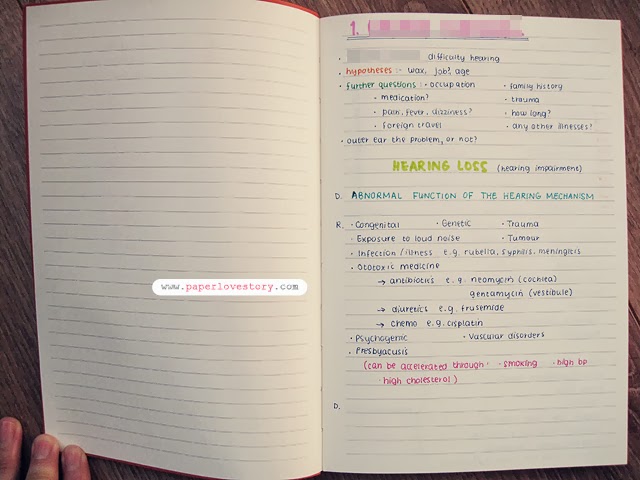 www.paperlovestory.com
1.
· difficulty hearing
· hypotheses :- wax, job?, age
· further questions :- occupation · family history
· medication? · trauma
· pain, fever, dizziness? · how long?
· foreign travel · any other illnesses?
· outer ear the problem, or not?
HEARING LOSS (hearing impairment)
D. ABNORMAL FUNCTION OF THE HEARING MECHANISM
R. · Congenital · Genetic · Trauma
· Exposure to loud noise · Tumour
· Infection / illness e.g. rubella, syphilis, meningitis
· Ototoxic medicine
→ antibiotics e.g. neomycin (cochlea)
gentamycin (vestibule)
→ diuretics e.g. frusemide
→ chemo e.g. cisplatin
· Psychogenic · Vascular disorders
· Presbyacusis
(can be accelerated through · smoking · high bp
· high cholesterol)
D.